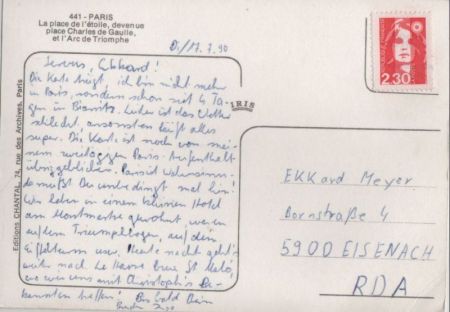 441 - PARIS
La place de l'étoile, devenue
place Charles de Gaulle,
et l'Arc de Triomphe
Di/17.7.90
Servus, Ekkard!
Die Karte trügt, ich bin nicht mehr
in Paris, sondern schon seit 4 Ta-
gen in Biarritz. Leider ist das Wetter
schlecht, ansonsten läuft alles
super. Die Karte ist noch von mei-
nem zweitägigen Paris-Aufenthalt
übriggeblieben. Paris ist Wahnsinn.
da mußt Du unbedingt mal hin!
Wir haben in einem kleinen Hotel
am Montmartre gewohnt, waren
auf dem Triumphbogen, auf dem
Eiffelturm usw. Heute nacht geht's
weiter nach Le Havre bzw. St. Malo,
wo wir uns mit Christophs Be-
kannten treffen! Bis bald Dein
Editions CHANTAL, 74, rue des Archives, Paris
IRIS
2,30
EKKard Meyer
Bornstraße 4
5900 EISENACH
RDA